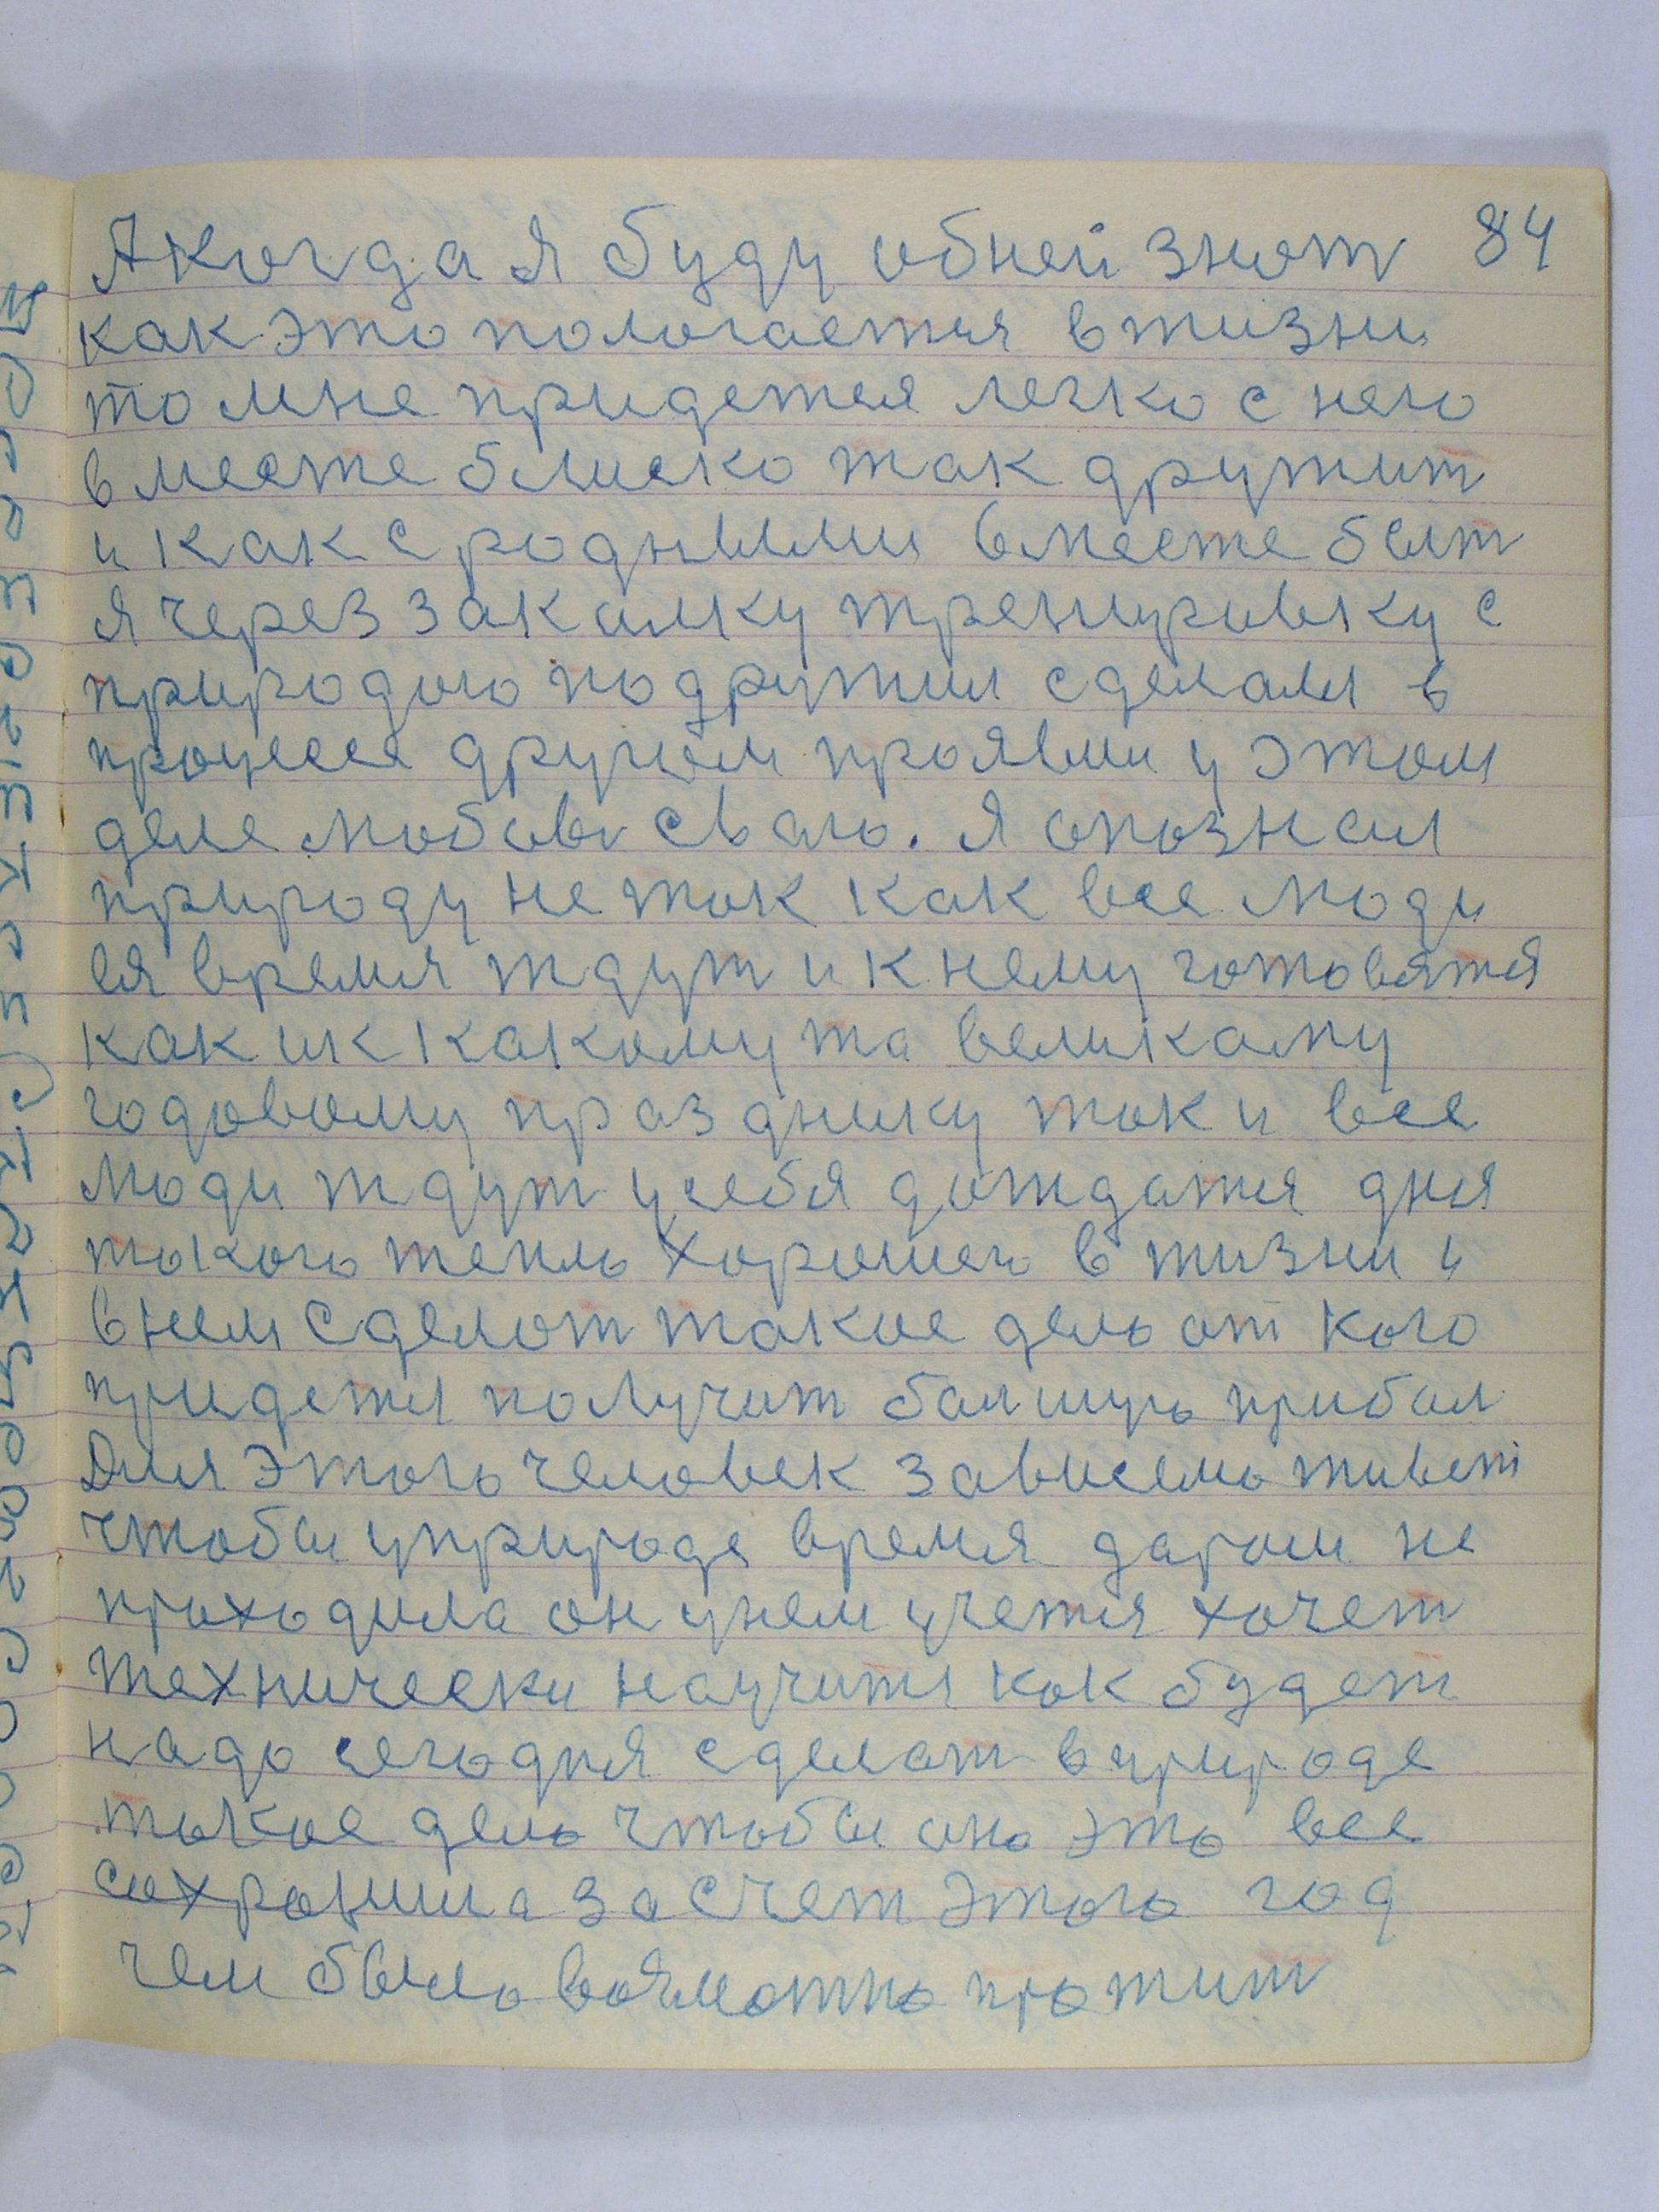 84
А когда я буду обней знот
как это пологается в жизни
то мне придется легко с нею
вместе блиско так дружит
и как с родными вместе быт
я через закалку тренировку с
природою подружил сделался в
процессе другом проявил у этом
деле любовь сваю. Я опознал
природу не так как все люди
ея время ждут и к нему готовятся
как и к какому та великаму
годовому празднику так и все
люди ждут у себя дождатся дня
такого тепло хорошего в жизни и
в нем сделат такое дело от кого
придется получит балшую прибал
Для этого человек зависемо живет
чтобы у природе время даром не
проходила он у нем учется хочет
технически научится как будет
надо сегодня сделат в природе
такое дело чтобы оно это все
сохранила за счет этого год
чем было возможно прожит